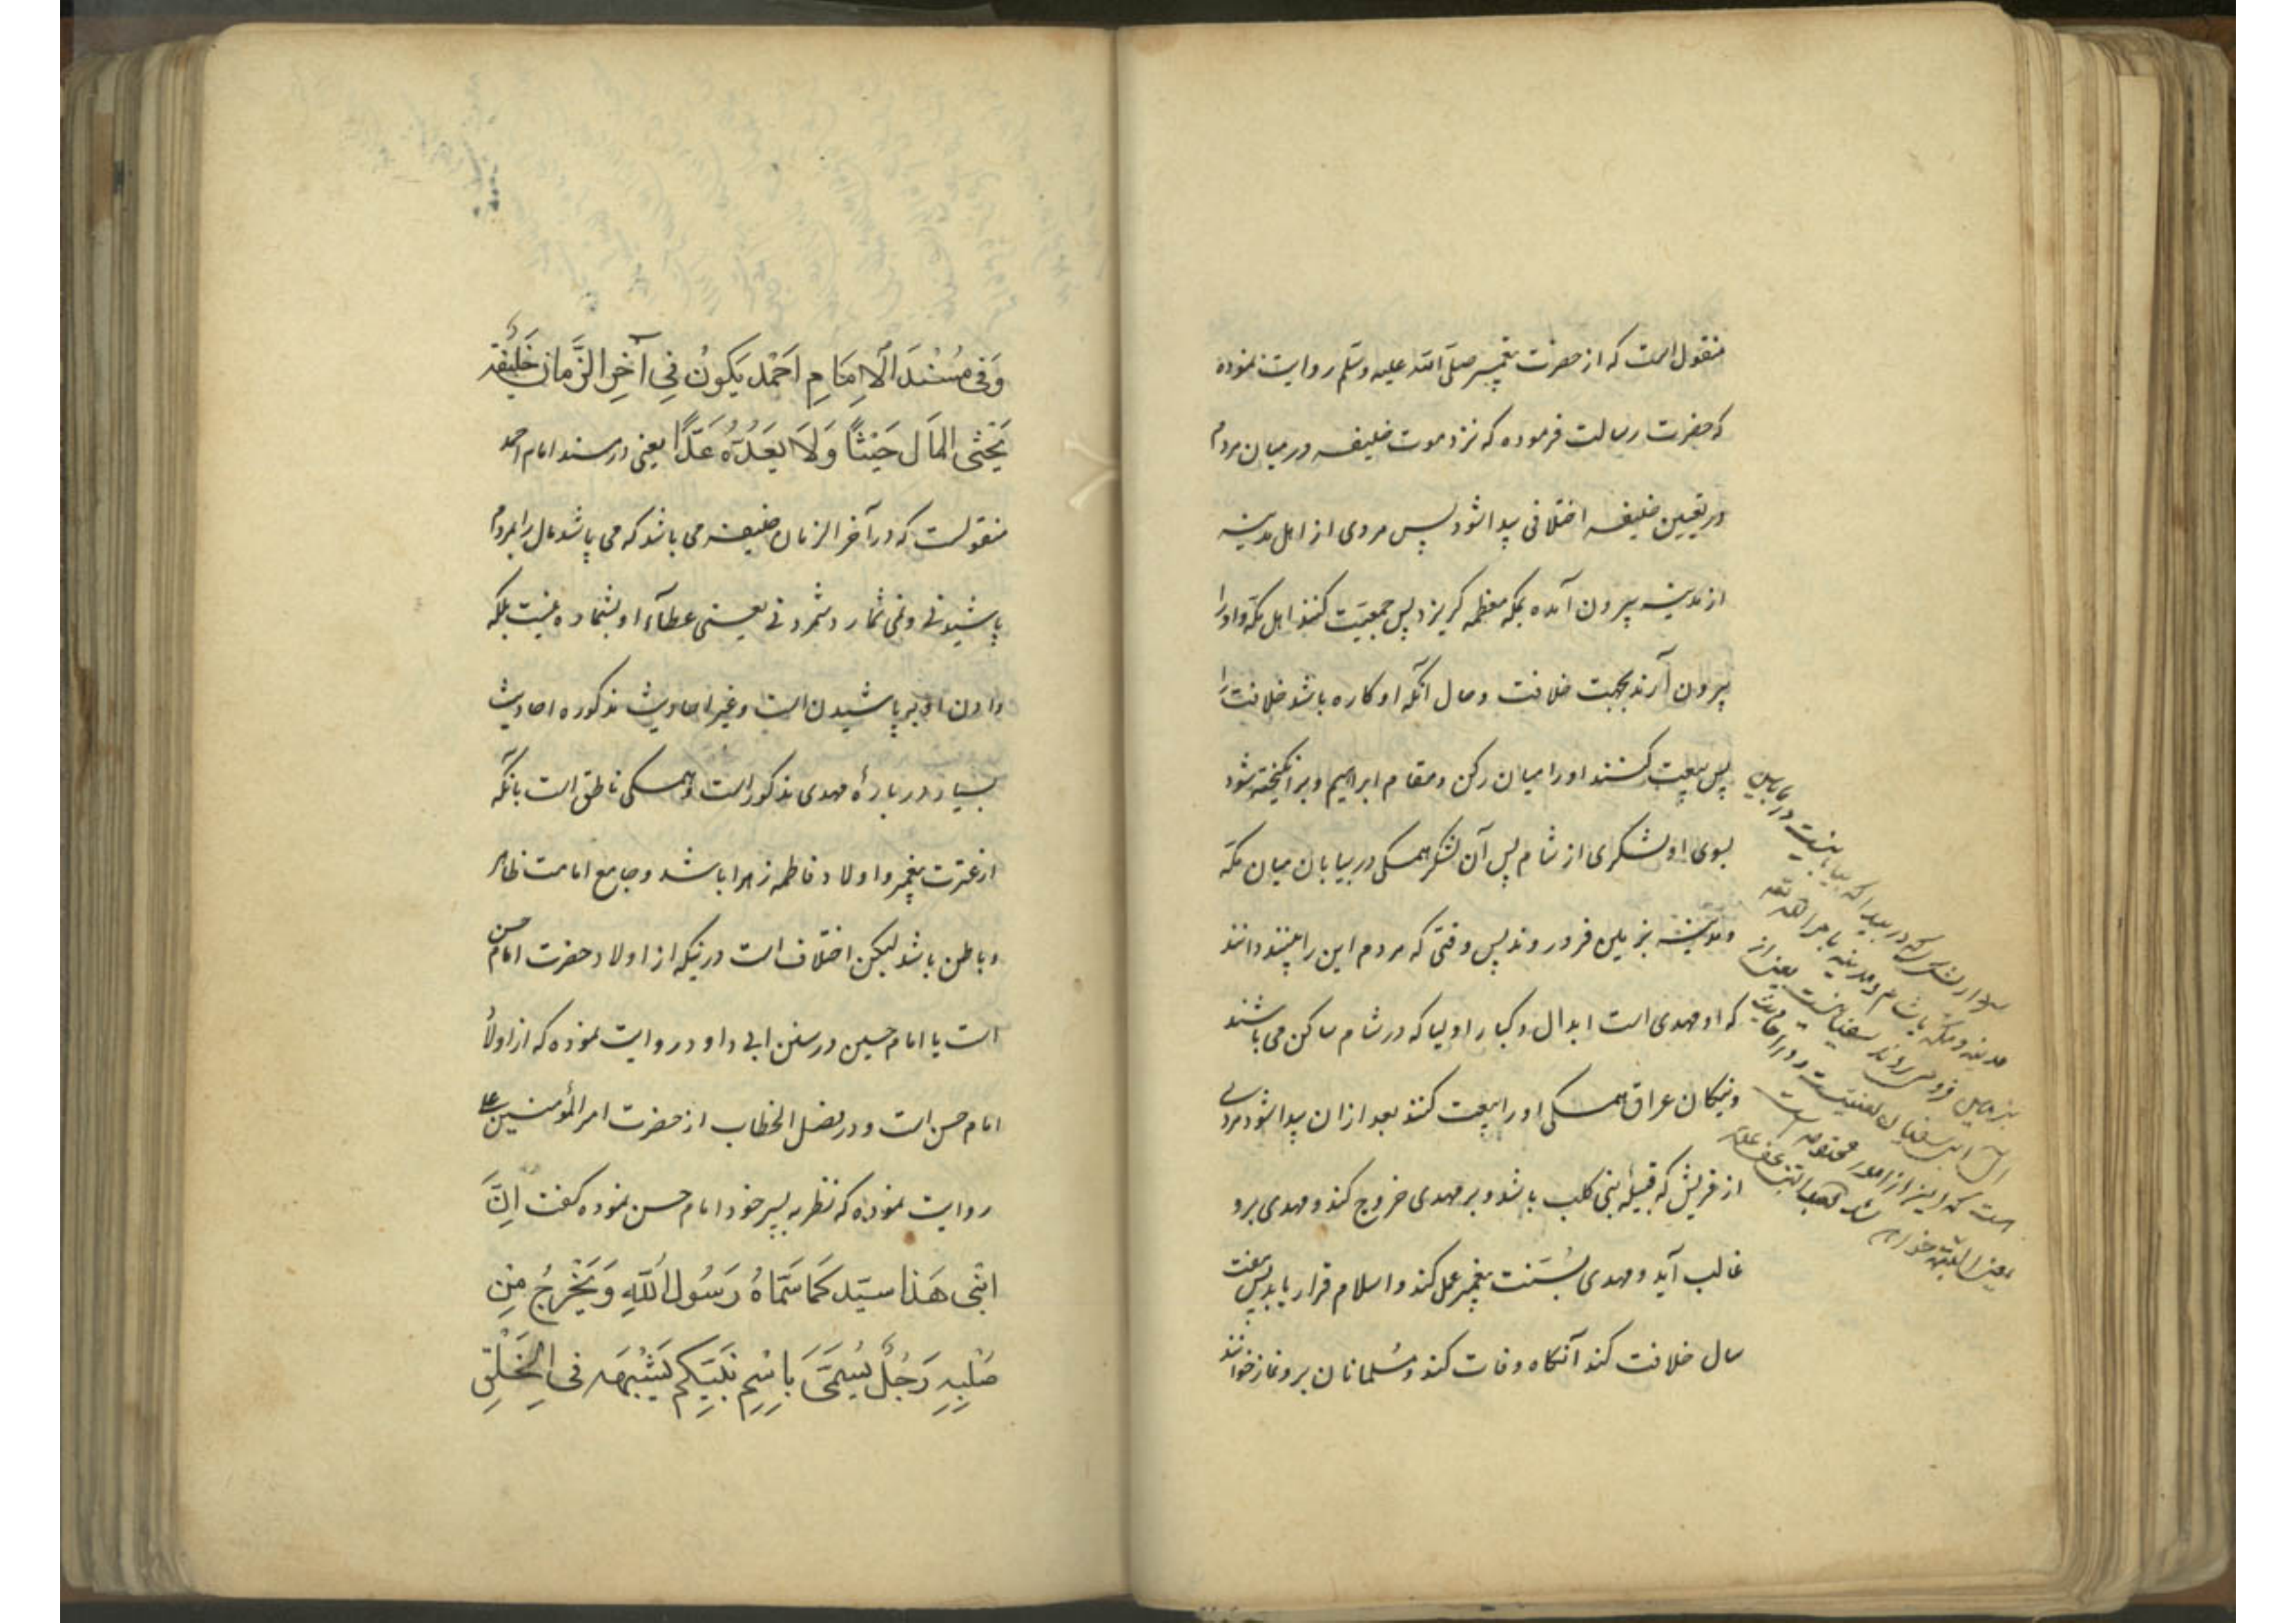 منقول است که از حضرت پیغمبر صلی الله علیه وسلم روایت نموده
که حضرت رسالت فرموده که نزد موت خلیفه در میان مردم
در تعیین خلیفه اختلافی پیدا شود پس مردی از اهل مدینه
از مدینه بیرون آمده بمکه معظمه کریزد پس جمعیت کنند اهل مکه و او را
بیرون آرند بجهت خلافت و حال آنکه او کاره باشد خلافت را
پس بیعت کنند او را میان رکن و مقام ابراهیم و بر انکیخته شود
بسوی او لشکری از شام پس آن لشکر همکی در بیابان میان مکه
و مدینه بزمین فرو روند پس وقتی که مردم این را بینند دانند
که او مهدی است ابدال و کبار اولیا که در شام ساکن می باشند
و نیکان عراق همکی او را بیعت کنند بعد از ان پیدا شود مردی
از قریش که قبیلهٔ بنی کلب باشد و بر مهدی خروج کند و مهدی برو
غالب آید و مهدی بسُنت پیغمبر عمل کند و اسلام قرار یابد پس هفت
سال خلافت کند آنکاه وفات کند و مُسلمانان برو نماز خوانند
که در بیدا که بیابانیست در مابین
مدینه و مکه یا شام و مدینه بامر الله تعه
بزمین فرو می روند سفیانیست یعنی از
است که این از امور محتومه است
وَفی مُسْنَدَ الْاِمَامِ اَحْمَد یَکُونُ فِی آخِرِ الزَّمانِ خَلِیْفَة
یَحْثی المَالَ حَیْثاً وَلَا یَعَدُّهُ عَدًّا یعنی در مسند امام احمد
منقولست که در آخر الزمان خلیفه می باشد که می پاشد مال را بمردم
پاشیدنی و نمی شمارد شمردنی یعنی عطاء او بشماره نیست بلکه
دادن او بر پاشیدن است و غیر احادیث مذکوره احادیث
بسیار در بارهٔ مهدی مذکور است و همکی ناطق است بانکه
از عترت پیغمبر و اولاد فاطمه زهرا باشد و جامع امامت ظاهر
و باطن باشد لیکن اختلاف است در نیکه از اولاد حضرت امام حسن
است یا امام حسین در سنن ابی داود روایت نموده که از اولاد
امام حسن است و در فصل الخطاب از حضرت امیر المؤمنین علی
روایت نموده که نظر به پسر خود امام حسن نموده کفت اِنَّ
ابْنی هَذا سیّد کَمَا سَمَّاهُ رَسُولُ اللّٰهِ وَیَخْرُجُ مِن
صُلْبِهِ رَجُلٌ یُسَمَّی بَاِسْمِ نَبِیِّکُم یَشْبِهَه فی الْخَلْقِ